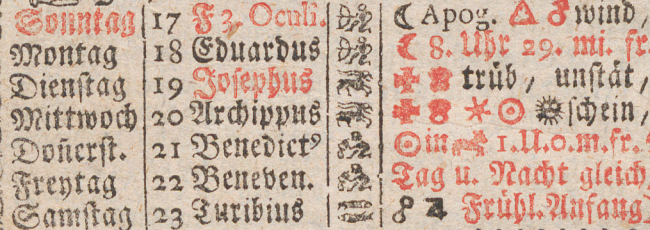 Sonntag 17 F 3. Oculi. ☾ Apog. △ ☌ wind,
Montag 18 Eduardus ☾ 8. Uhr 29. mi. fr.
Dienstag 19 Josephus trüb, unstät,
Mittwoch 20 Archippus ✶ ☉ schein,
Don̄erst. 21 Benedictꝰ ☉ in 1. U. 0. m. fr.
Freytag 22 Beneven. Tag u. Nacht gleich,
Samstag 23 Turibius Frühl. Anfang